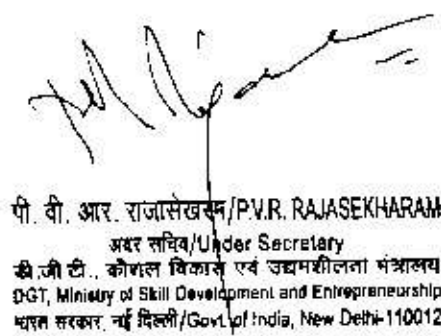 पी. वी. आर. राजासेखरम/P.V.R. RAJASEKHARAM
अवर सचिव/Under Secretary
डी.जी टी., कौशल विकास एवं उद्यमशीलता मंत्रालय
DGT, Ministry of Skill Development and Entrepreneurship
भारत सरकार, नई दिल्ली/Govt. of India, New Delhi-110012